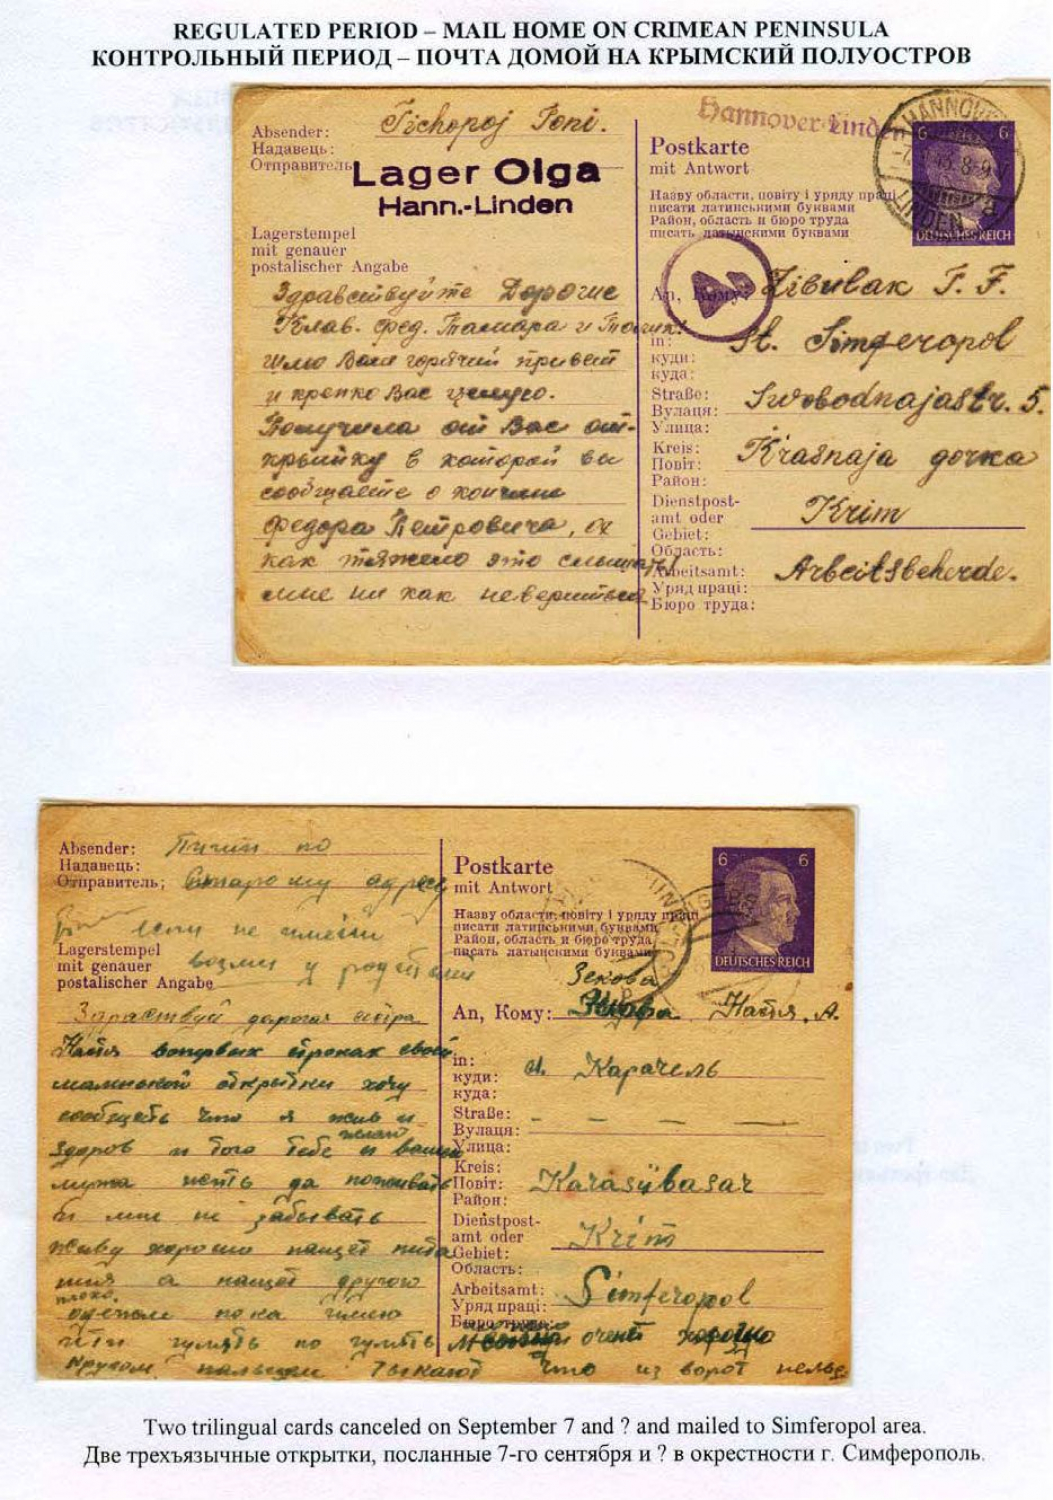 REGULATED PERIOD – MAIL HOME ON CRIMEAN PENINSULA
КОНТРОЛЬНЫЙ ПЕРИОД – ПОЧТА ДОМОЙ НА КРЫМСКИЙ ПОЛУОСТРОВ
Absender: Tichopoj Toni.
Надавець:
Отправитель:
Lager Olga
Hann.-Linden
Lagerstempel
mit genauer
postalischer Angabe
Здравствуйте Дорогие
Клав. Фед. Тамара и
шлю Вам горячий привет
и крепко Вас целую.
Получила от Вас от-
крытку в которой вы
сообщаете о кончине
Федора Петровича, ох
как тяжело это слышать!
мне ни как неверится
Hannover-Linden
HANNOVER
LINDEN
a
Postkarte
mit Antwort
Назву области, повіту і уряду праці
писати латинськими буквами
Район, область и бюро труда
писать латынскими буквами
6 6
DEUTSCHES REICH
A
An, Кому: Zibulak T. F.
in: St. Simferopol
куди:
куда:
Straße: Swobodnajastr. 5.
Вулаця:
Улица:
Kreis: Krasnaja gorka
Повіт:
Район:
Dienstpost-
amt oder Krim
Gebiet:
Область:
Arbeitsamt: Arbeitsbeherde.
Уряд праці:
Бюро труда:
Absender: Пиши по
Надавець:
Отправитель; старому адресу
если не имееш
Lagerstempel
mit genauer возми у родителей
postalischer Angabe
Здраствуй дорогая сестра
Настя вопервых строках своей
маленькой открытки хочу
сообщить что я жив и
желаю
здоров и того тебе и вашей
да
би мне не забывать
живу хорошо нащет пита
ния а нащет другого
плохо.
пока имею
йти гулять по гулять
кругом пальцем тыкают что из ворот нельзя
Postkarte
mit Antwort
Назву области, повіту і уряду праці
писати латинськими буквами
Район, область и бюро труда
писать латынскими буквами
6 6
DEUTSCHES REICH
Зекова
An, Кому: Настя. А.
in: д. Карачель
куди:
куда:
Straße: – – – —
Вулаця:
Улица:
Kreis:
Повіт: Karasübasar
Район:
Dienstpost-
amt oder Krim
Gebiet:
Область:
Arbeitsamt: Simferopol
Уряд праці:
Бюро труда:
очень хорошо
Two trilingual cards canceled on September 7 and ? and mailed to Simferopol area.
Две трехъязычные открытки, посланные 7-го сентября и ? в окрестности г. Симферополь.